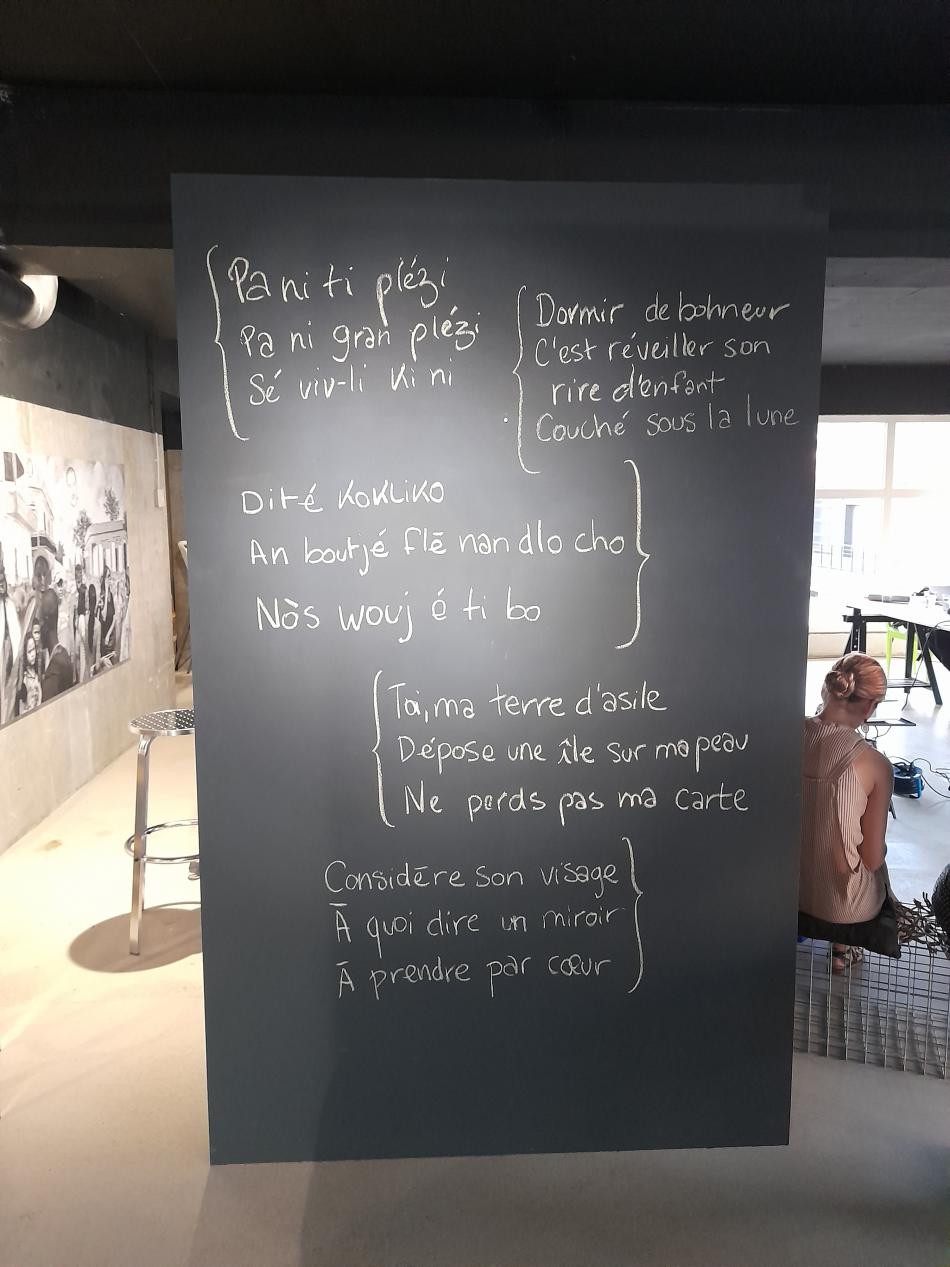 Pa ni ti plézi
Pa ni gran plézi
Sé viv-li ki ni
Dormir de bonheur
C'est réveiller son
rire d'enfant
Couché sous la lune
Dité kokliko
An boutjé flē nan dlo cho
Nòs wouj é ti bo
Toi, ma terre d'asile
Dépose une île sur ma peau
Ne perds pas ma carte
Considēre son visage
Ā quoi dire un miroir
Ā prendre par cœur